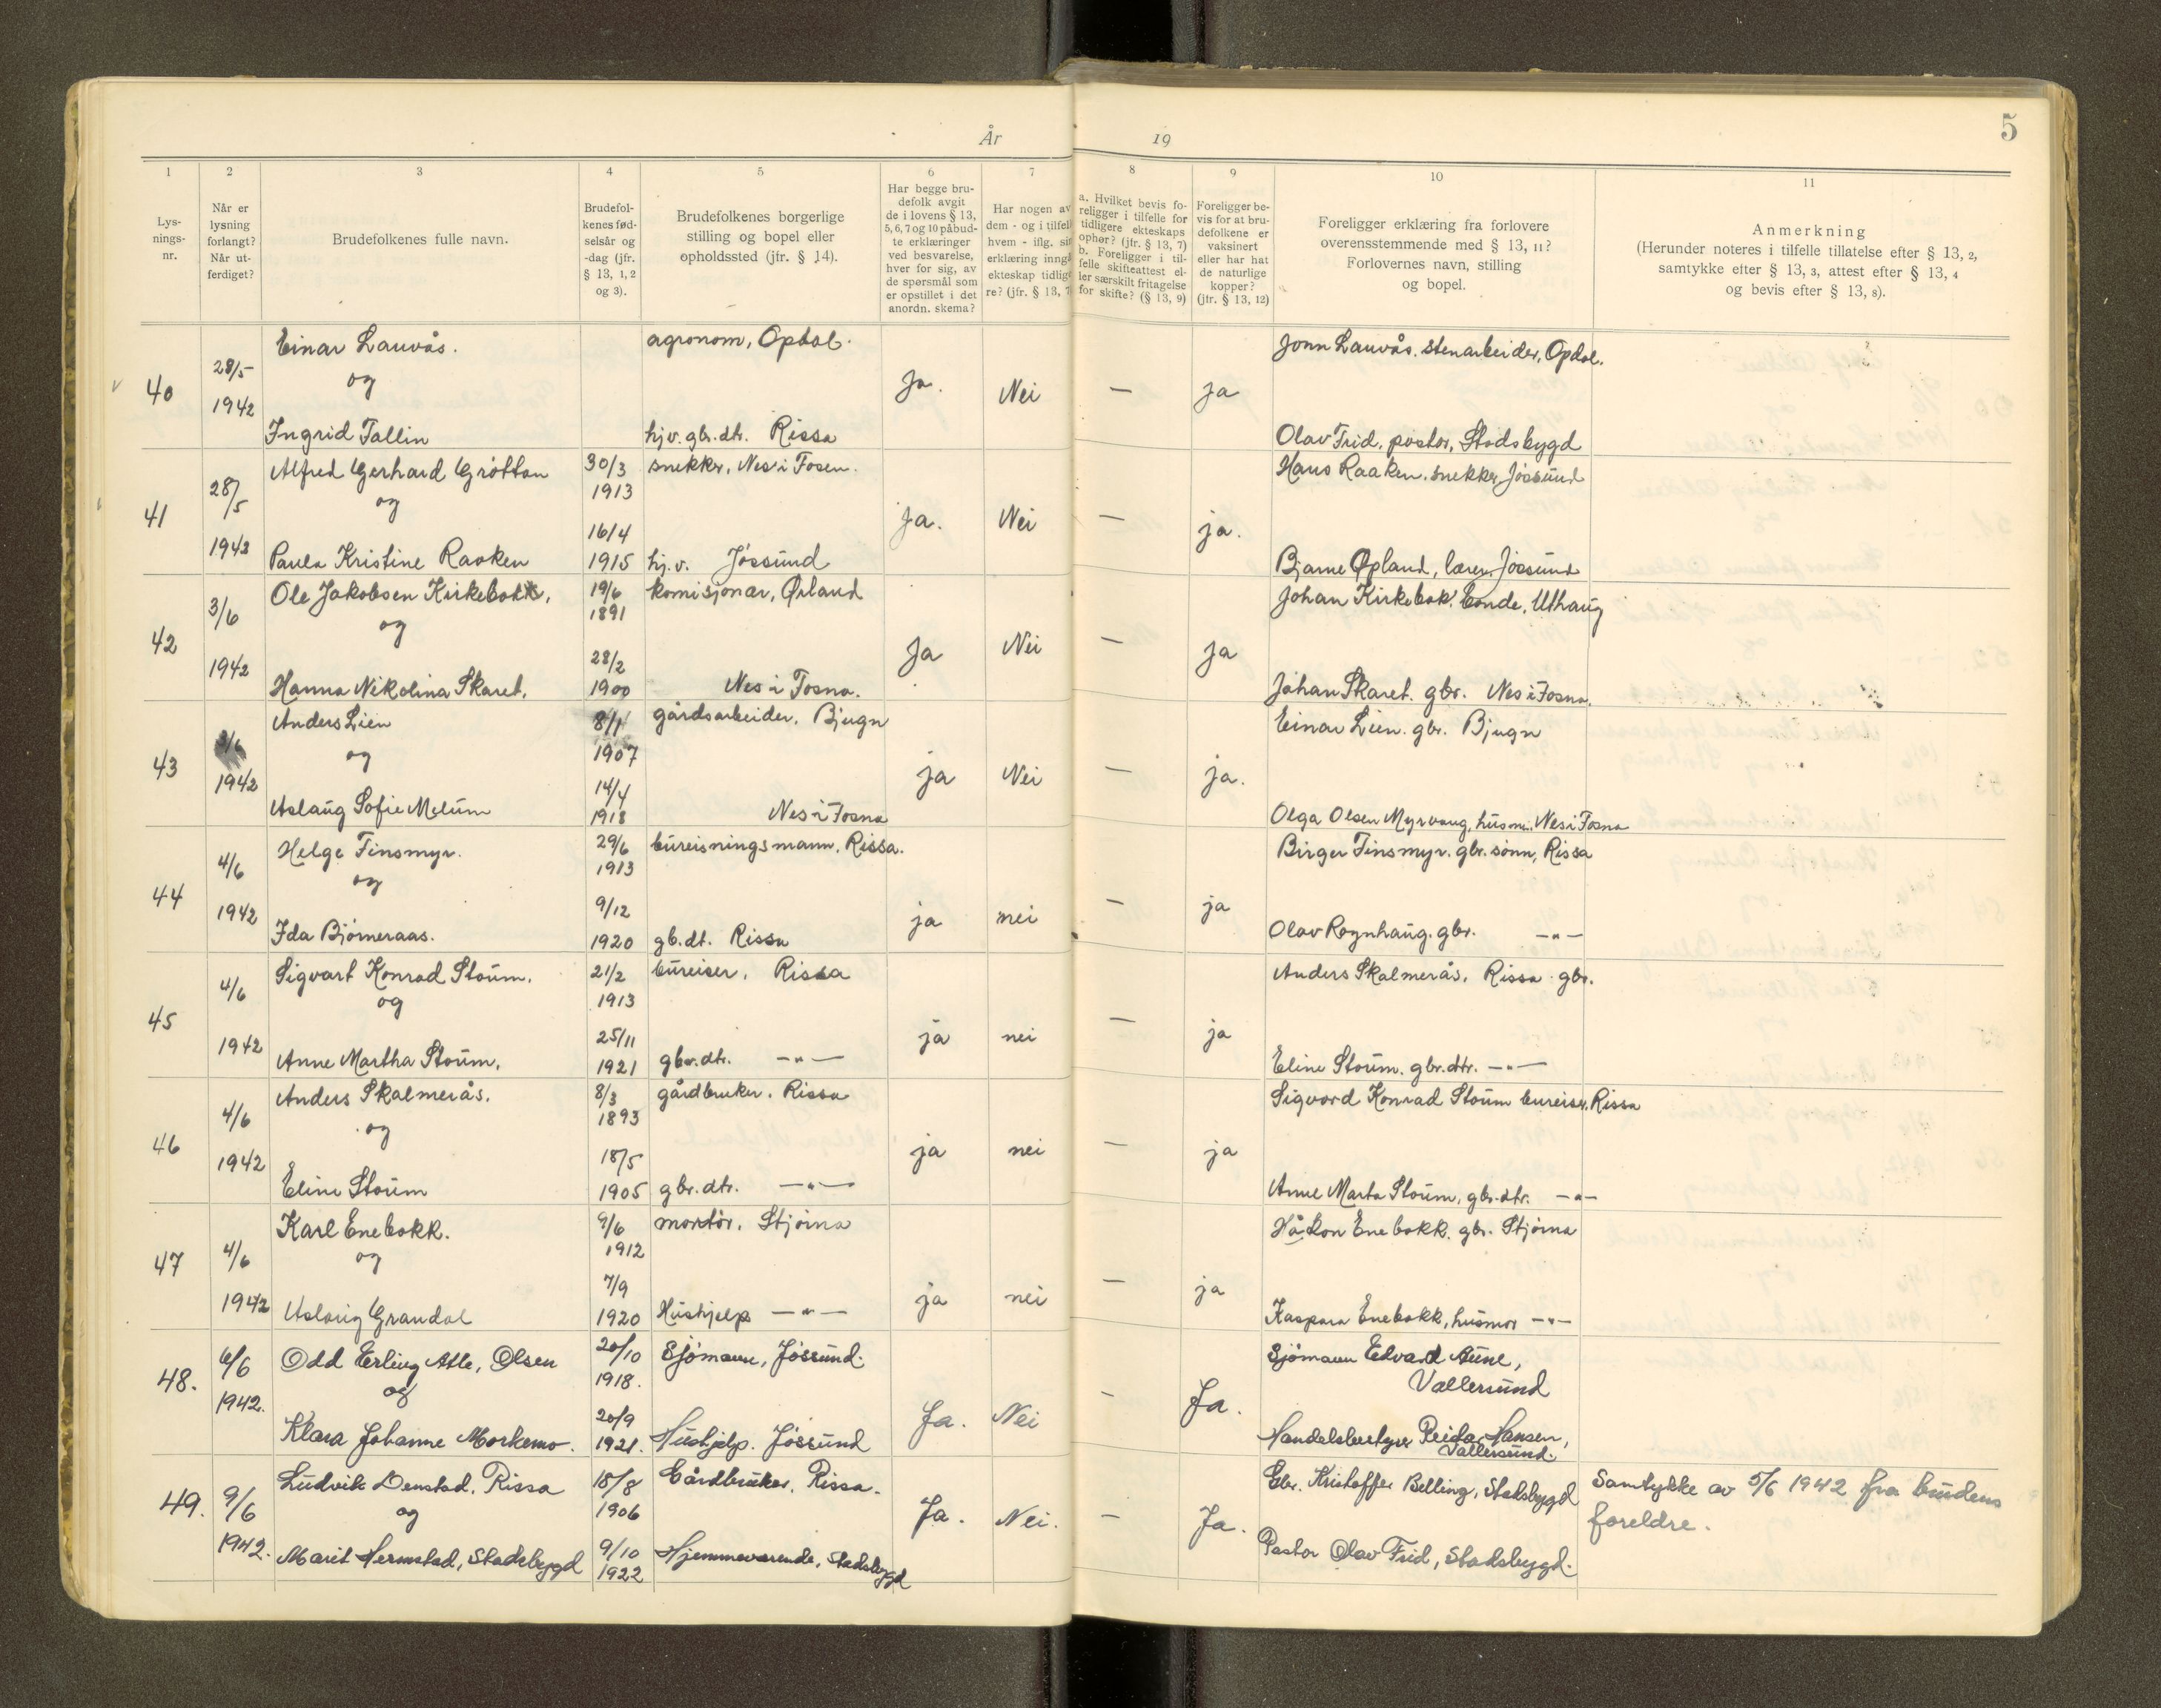 År 19
5
1 2 3 4 5 6 7 8 9 10 11
Lys-
nings-
nr.
Når er
lysning
forlangt?
Når ut-
ferdiget?
Brudefolkenes fulle navn.
Brudefol-
kenes fød-
selsår og
-dag (jfr.
§ 13, 1, 2
og 3).
Brudefolkenes borgerlige
stilling og bopel eller
opholdssted (jfr. § 14).
Har begge bru-
defolk avgit
de i lovens § 13,
5, 6, 7 og 10 påbud-
te erklæringer
ved besvarelse,
hver for sig, av
de spørsmål som
er opstillet i det
anordn. skema?
Har nogen av
dem - og i tilfel
hvem - iflg. sin
erklæring inngå
ekteskap tidlig
re? (jfr. § 13, 7
a. Hvilket bevis fo-
religger i tilfelle for
tidligere ekteskaps
ophør? (jfr. § 13, 7)
b. Foreligger i til-
felle skifteattest el-
ler særskilt fritagelse
for skifte? (§ 13, 9)
Foreligger be-
vis for at bru-
defolkene er
vaksinert
eller har hat
de naturlige
kopper?
(jfr. § 13, 12)
Foreligger erklæring fra forlovere
overensstemmende med § 13, 11?
Forlovernes navn, stilling
og bopel.
Anmerkning
(Herunder noteres i tilfelle tillatelse efter § 13, 2,
samtykke efter § 13, 3, attest efter § 13, 4
og bevis efter § 13, 8).
Einar Lauvås. agronom, Opdal. Jonn Lauvås. stenarbeider, Opdal.
40 28/5 1942 og Ja. Nei — ja
Ingrid Tallin hjv. gbr. dtr. Rissa Olav Frid, pastor, Stadsbygd
Alfred Gerhard Grøttan 30/3 1913 snekker, Nes i Fosen. Hans Raaken. snekker, Jøssund
41 28/5 1942 og Ja. Nei — ja.
Paula Kristine Raaken 16/4 1915 hj.v. Jøssund Bjarne Opland, lærer, Jøssund
Ole Jakobsen Kirkebakk, 19/6 1891 komisjonær, Ørland Johan Kirkebak. bonde, Uthaug
42 3/6 1942 og Ja Nei — ja
Hanna Nikolina Skaret. 28/2 1900 Nes i Fosna. Johan Skaret. gbr. Nes i Fosna.
Anders Lien 8/1 1907 gårdsarbeider. Bjugn Einar Lien. gbr. Bjugn
43 3/6 1942 og ja Nei — ja.
Aslaug Sofie Melum 14/4 1918 Nes i Fosna Olga Olsen Myrvang, husm. Nes i Fosna
Helge Finsmyr. 29/6 1913 bureisningsmann. Rissa. Birger Finsmyr. gbr. sønn, Rissa
44 4/6 1942 og ja nei — ja
Ida Bjørneraas. 9/12 1920 gb. dt. Rissa Olav Rognhaug. gbr. —„—
Sigvart Konrad Stoum. 21/2 1913 bureiser. Rissa Anders Skalmerås. Rissa gbr.
45 4/6 1942 og ja nei — ja
Anne Martha Stoum. 25/11 1921 gbr. dtr. —„— Eline Stoum. gbr. dtr. —„—
Anders Skalmerås. 8/3 1893 gårdbruker. Rissa Sigvard Konrad Stoum bureiser. Rissa
46 4/6 1942 og ja nei — ja
Eline Stoum 18/5 1905 gbr. dtr. —„— Anne Marta Stoum, gbr. dtr. —„—
Karl Enebakk. 9/6 1912 montør, Stjørna Håkon Enebakk. gbr. Stjørna
47 4/6 1942 og ja nei — ja
Aslaug Grandal 7/9 1920 Hushjelp —„— Kaspara Enebakk, husmor —„—
Odd Erling Atle, Olsen 20/10 1918. Sjømann, Jøssund. Sjømann Edvard Aune,
Vallersund
48. 6/6 1942. og Ja. Nei – Ja.
Klara Johanne Morkemo. 20/9 1921. Hushjelp. Jøssund Handelsbestyrer Peida Hansen,
Vallersund.
Ludvik Denstad, Rissa 18/8 1906 Gårdbruker. Rissa. Gbr. Kristoffer Belling, Stadsbygd Samtykke av 5/6 1942 fra brudens
foreldre.
49. 9/6 1942. og Ja. Nei. – Ja.
Marit Hermstad, Stadsbygd 9/10 1922 Hjemmeværende, Stadsbygd Pastor Olav Frid, Stadsbygd.